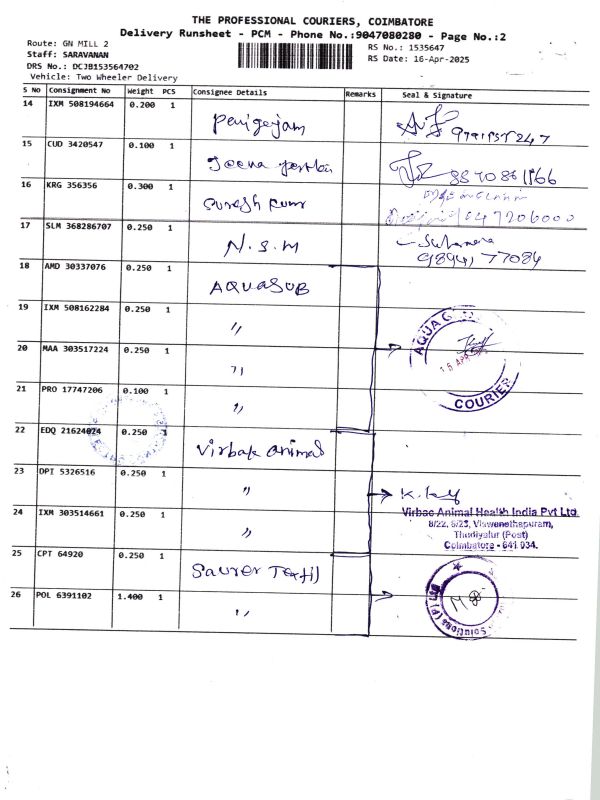 THE PROFESSIONAL COURIERS, COIMBATORE
Delivery Runsheet - PCM - Phone No.:9047080280 - Page No.:2
Route: GN MILL 2
Staff: SARAVANAN
DRS No.: DCJB153564702
Vehicle: Two Wheeler Delivery
RS No.: 1535647
RS Date: 16-Apr-2025
S No Consignment No Weight PCS Consignee Details Remarks Seal & Signature
14 IXM 508194664 0.200 1
15 CUD 3420547 0.100 1 Jeena
16 KRG 356356 0.300 1 Suresh Kumr
17 SLM 368286707 0.250 1 N.S.M
9894177084
18 AMD 30337076 0.250 1 AQUASUB
19 IXM 508162284 0.250 1 "
20 MAA 303517224 0.250 1 "
AQUA
COURIER
21 PRO 17747206 0.100 1 "
22 EDQ 21624024 0.250 1 Virbak animal
23 DPI 5326516 0.250 1 "
24 IXM 303514661 0.250 1 "
Virbac Animal Health India Pvt Ltd
8/22, 8/23, Viswenethapuram,
Thudiyalur (Post)
Coimbatore - 641 034.
25 CPT 64920 0.250 1 Saurer Textil
26 POL 6391102 1.400 1 "
Solutions (P) Ltd